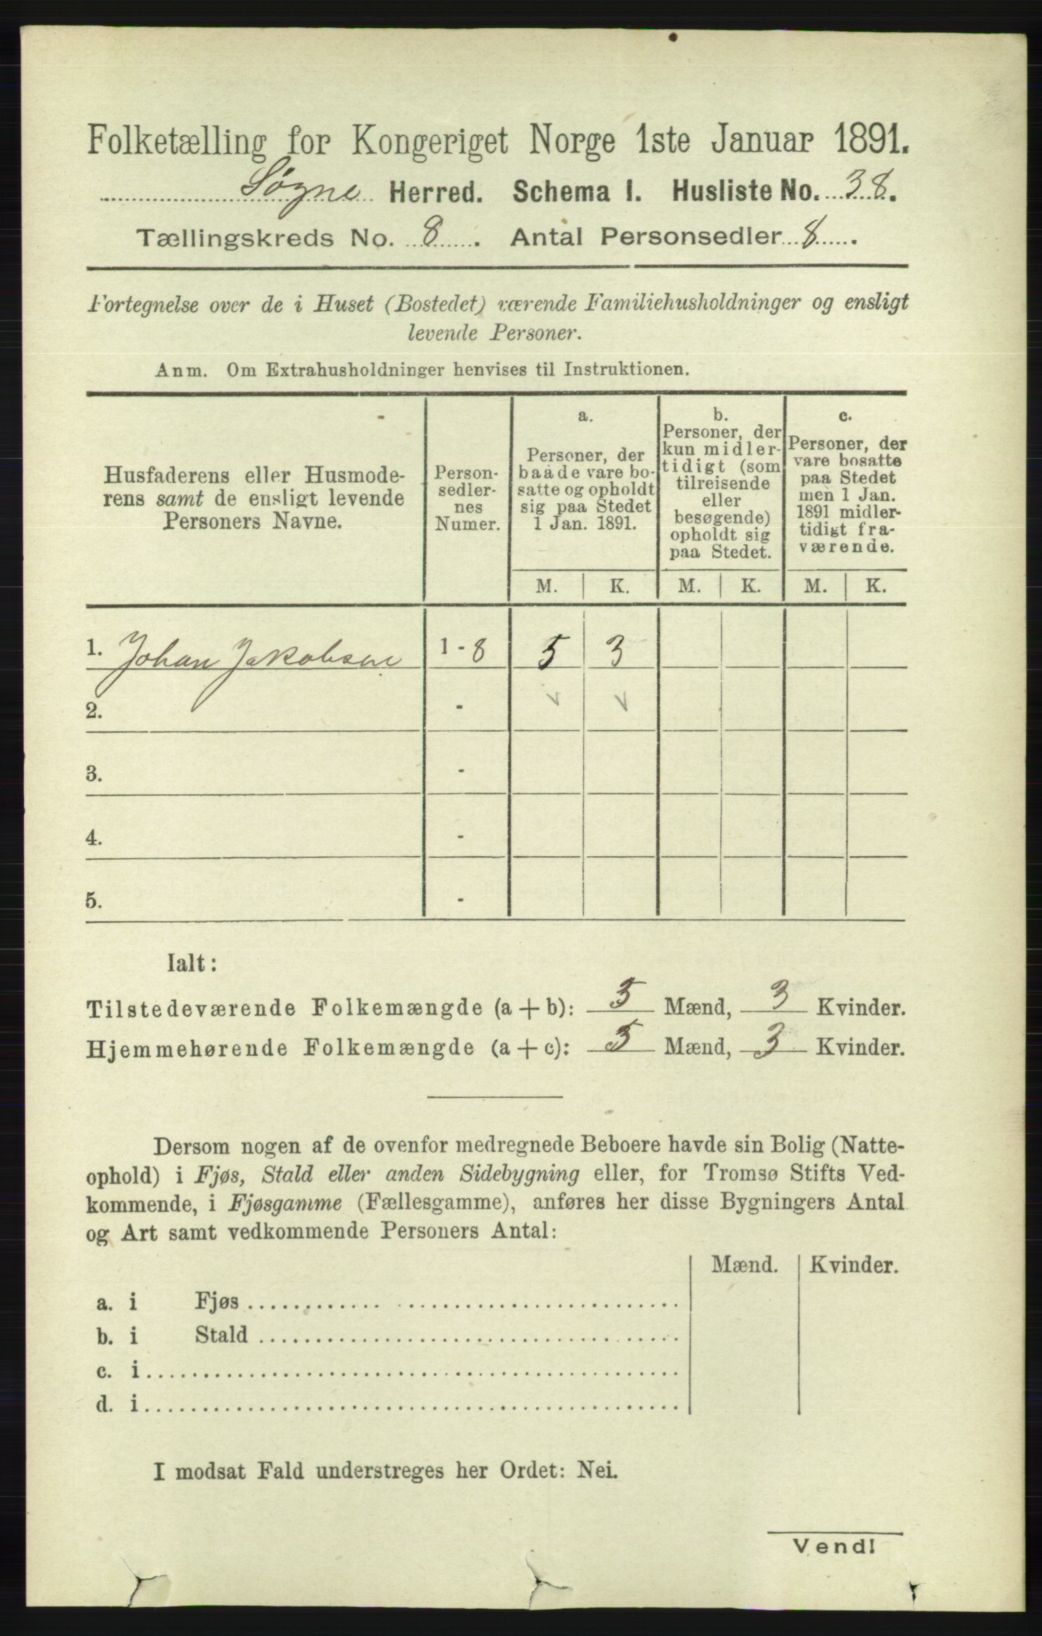 Folketælling for Kongeriget Norge 1ste Januar 1891.
Søgne Herred. Schema I. Husliste No. 38.
Tællingskreds No. 8. Antal Personsedler 8.
Fortegnelse over de i Huset (Bostedet) værende Familiehusholdninger og ensligt
levende Personer.
Anm. Om Extrahusholdninger henvises til Instruktionen.
Husfaderens eller Husmode-
rens samt de ensligt levende
Personers Navne.
Person-
sedler-
nes
Numer.
a.
Personer, der
baade vare bo-
satte og opholdt
sig paa Stedet
1 Jan. 1891.
b.
Personer, der
kun midler-
tidigt (som
tilreisende
eller
besøgende)
opholdt sig
paa Stedet.
c.
Personer, der
vare bosatte
paa Stedet
men 1 Jan.
1891 midler-
tidigt fra-
værende.
M. K. M. K. M. K.
1. Johan Jakobsen 1 - 8 5 3
2. -
3. -
4. -
5. -
Ialt:
Tilstedeværende Folkemængde (a + b): 5 Mænd, 3 Kvinder.
Hjemmehørende Folkemængde (a + c): 5 Mænd, 3 Kvinder.
Dersom nogen af de ovenfor medregnede Beboere havde sin Bolig (Natte-
ophold) i Fjøs, Stald eller anden Sidebygning eller, for Tromsø Stifts Ved-
kommende, i Fjøsgamme (Fællesgamme), anføres her disse Bygningers Antal
og Art samt vedkommende Personers Antal:
Mænd. Kvinder.
a. i Fjøs
b. i Stald
c. i
d. i
I modsat Fald understreges her Ordet: Nei.
Vend!